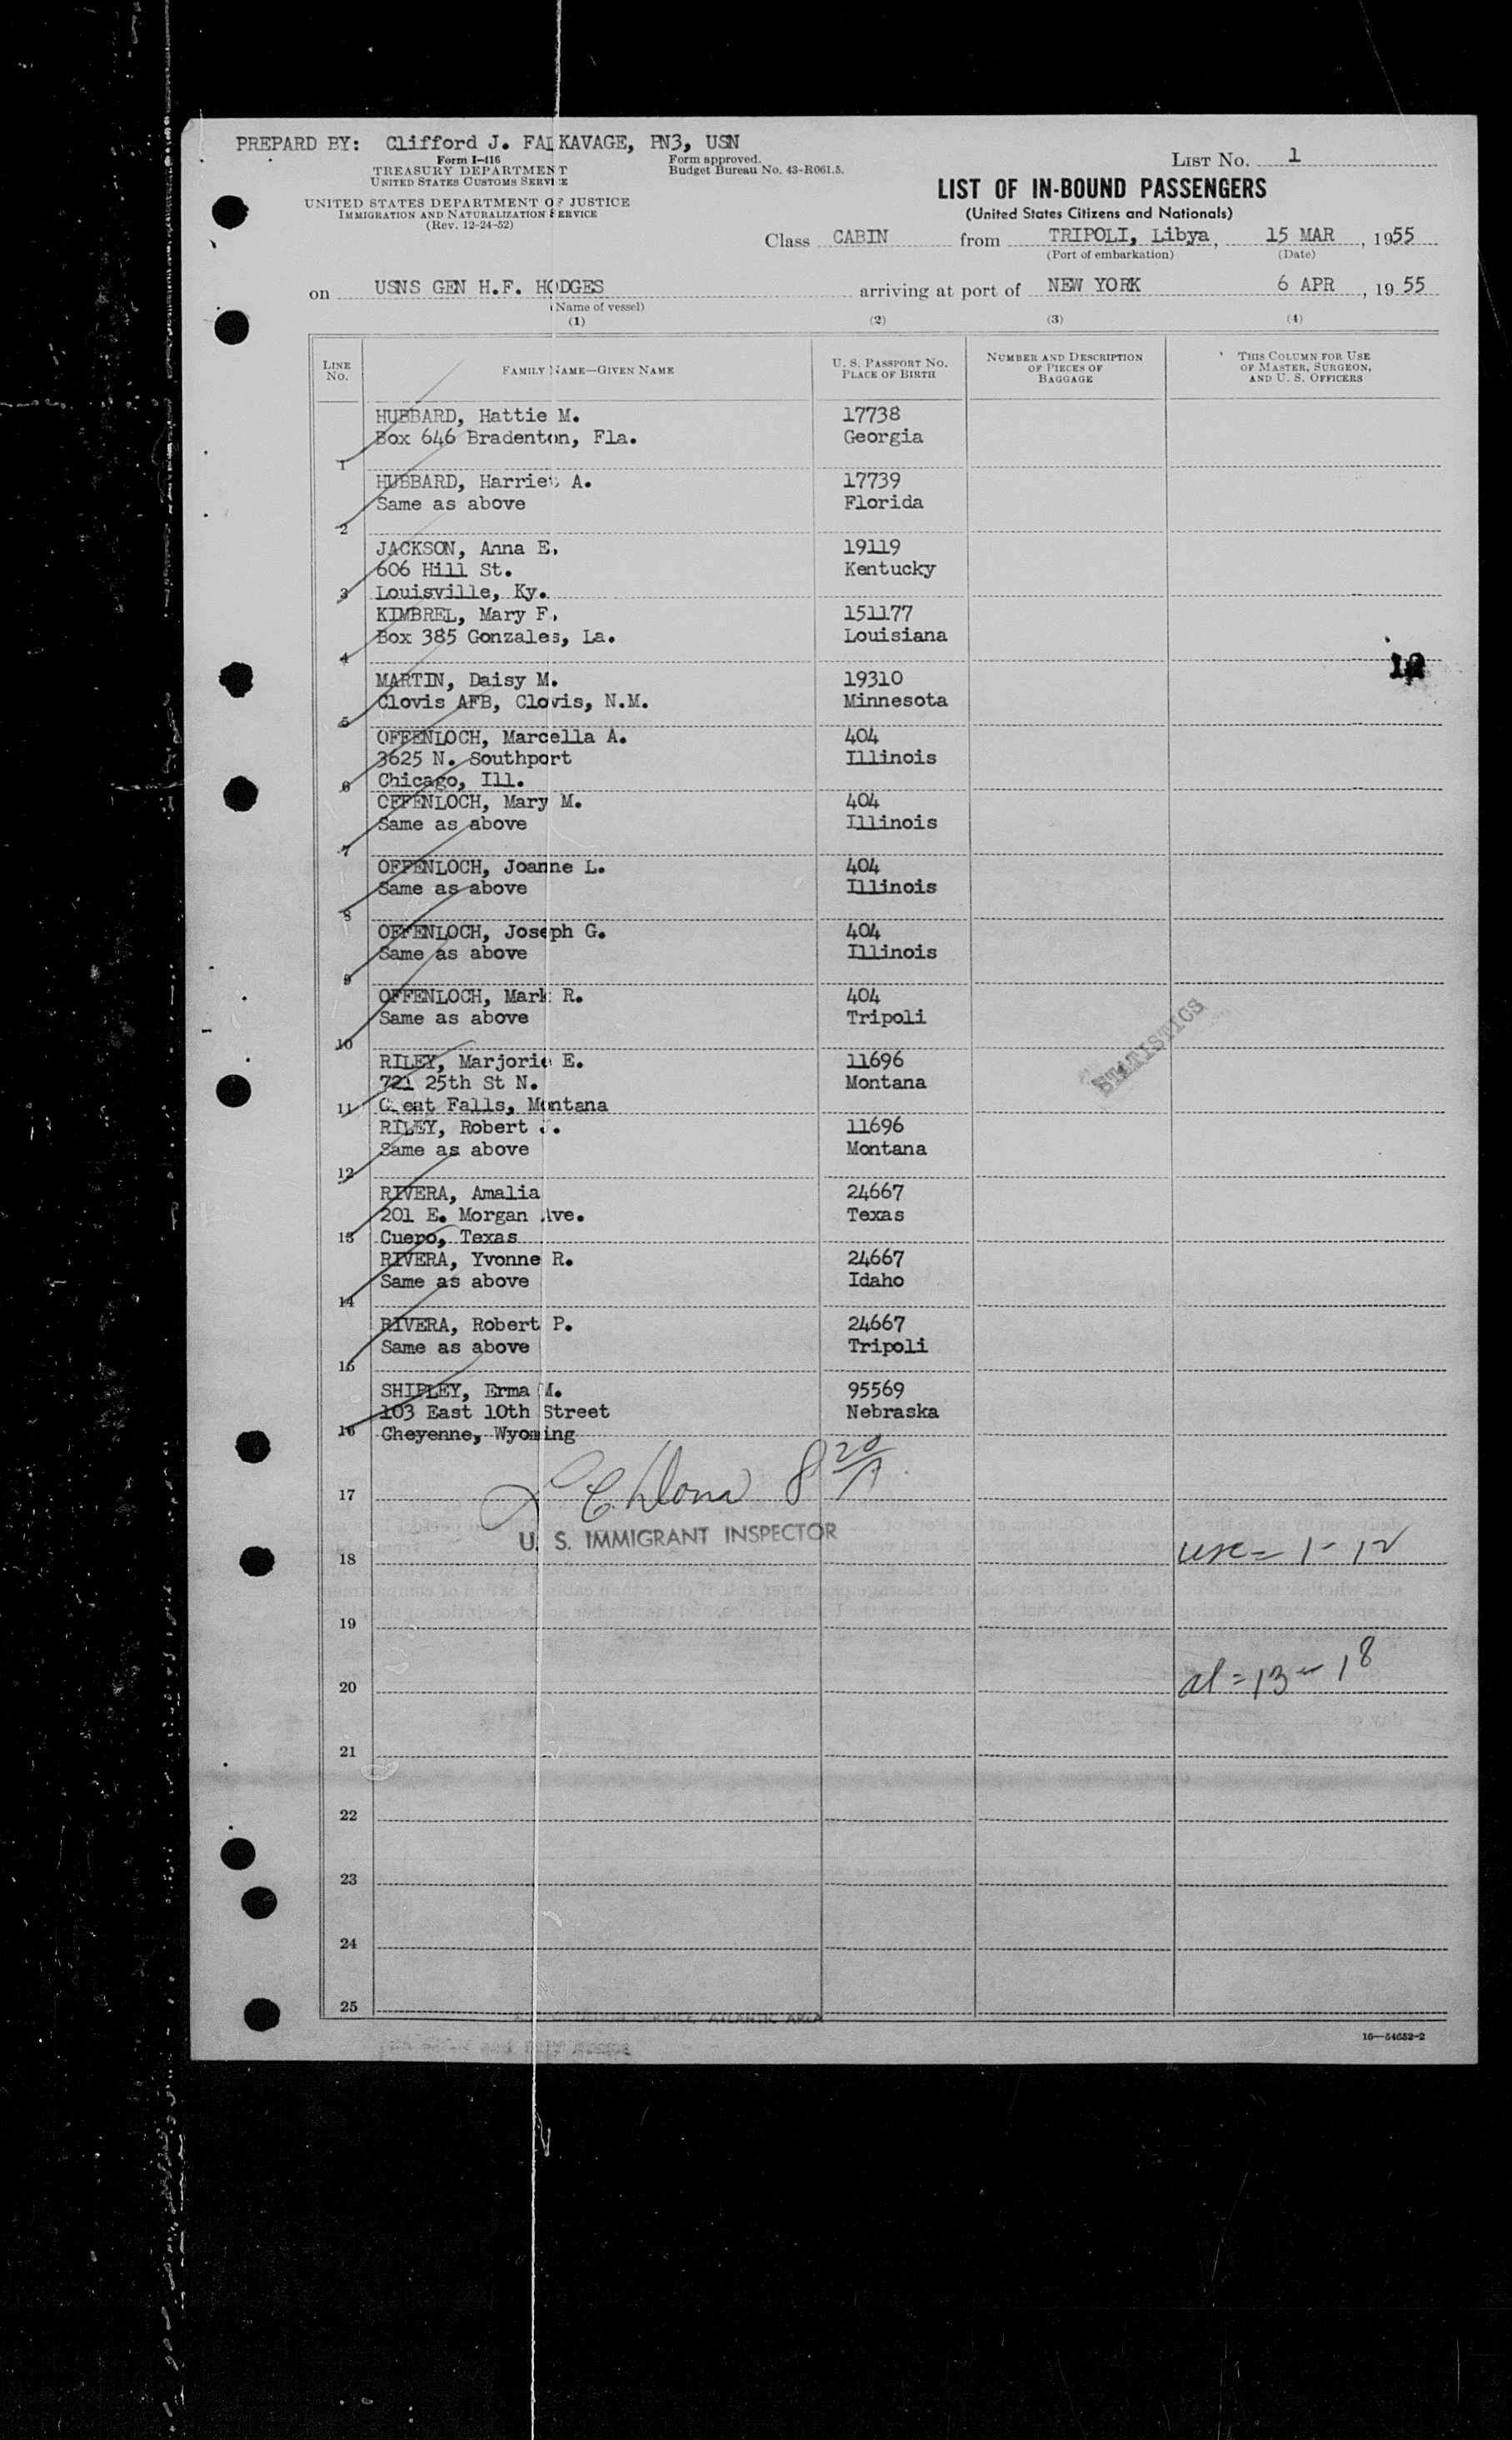 PREPARD BY: Clifford J. FALKAVAGE, PN3, USN
Form I-416
TREASURY DEPARTMENT
UNITED STATES CUSTOMS SERVICE
Form approved.
Budget Bureau No. 43-R061.5.
LIST No. 1
UNITED STATES DEPARTMENT OF JUSTICE
IMMIGRATION AND NATURALIZATION SERVICE
(Rev. 12-24-52)
LIST OF IN-BOUND PASSENGERS
(United States Citizens and Nationals)
Class CABIN from TRIPOLI, Libya, 15 MAR, 1955
(Port of embarkation) (Date)
on USNS GEN H.F. HODGES arriving at port of NEW YORK 6 APR, 1955
(Name of vessel)
(1) (2) (3) (4)
LINE NO. FAMILY NAME—GIVEN NAME U. S. PASSPORT NO. PLACE OF BIRTH NUMBER AND DESCRIPTION OF PIECES OF BAGGAGE THIS COLUMN FOR USE OF MASTER, SURGEON, AND U. S. OFFICERS
HUBBARD, Hattie M. 17738
Box 646 Bradenton, Fla. Georgia
1
HUBBARD, Harriet A. 17739
Same as above Florida
2
JACKSON, Anna E. 19119
606 Hill St. Kentucky
3 Louisville, Ky.
KIMBREL, Mary F. 151177
Box 385 Gonzales, La. Louisiana
4
12
MARTIN, Daisy M. 19310
Clovis AFB, Clovis, N.M. Minnesota
5
OFFENLOCH, Marcella A. 404
3625 N. Southport Illinois
6 Chicago, Ill.
OFFENLOCH, Mary M. 404
Same as above Illinois
7
OFFENLOCH, Joanne L. 404
Same as above Illinois
8
OFFENLOCH, Joseph G. 404
Same as above Illinois
9
OFFENLOCH, Mark R. 404
Same as above Tripoli
10
STATISTICS
RILEY, Marjorie E. 11696
721 25th St N. Montana
11 Great Falls, Montana
RILEY, Robert J. 11696
Same as above Montana
12
RIVERA, Amalia 24667
201 E. Morgan Ave. Texas
13 Cuero, Texas
RIVERA, Yvonne R. 24667
Same as above Idaho
14
RIVERA, Robert P. 24667
Same as above Tripoli
15
SHIPLEY, Erma M. 95569
103 East 10th Street Nebraska
16 Cheyenne, Wyoming
17
U. S. IMMIGRANT INSPECTOR
18 usc = 1-12
19
20 al = 13-18
21
22
23
24
25
SERVICE, ATLANTIC AREA
16—64652-2